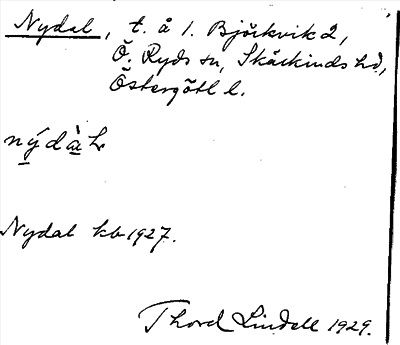 Nydal, t. å 1. Björkvik 2,
Ö. Ryds sn, Skärkinds hd,
Östergötl l.
Nydal kb 1927.
Thord Lindell 1929.